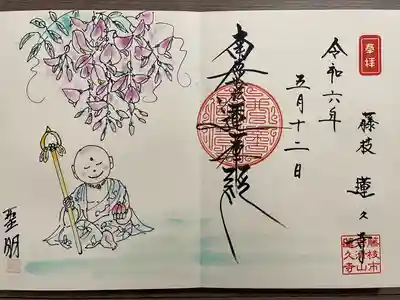 奉拝
藤枝 蓮久寺
令和六年
五月十二日
南無妙法蓮華経
聖朋
藤枝市
蓮久寺